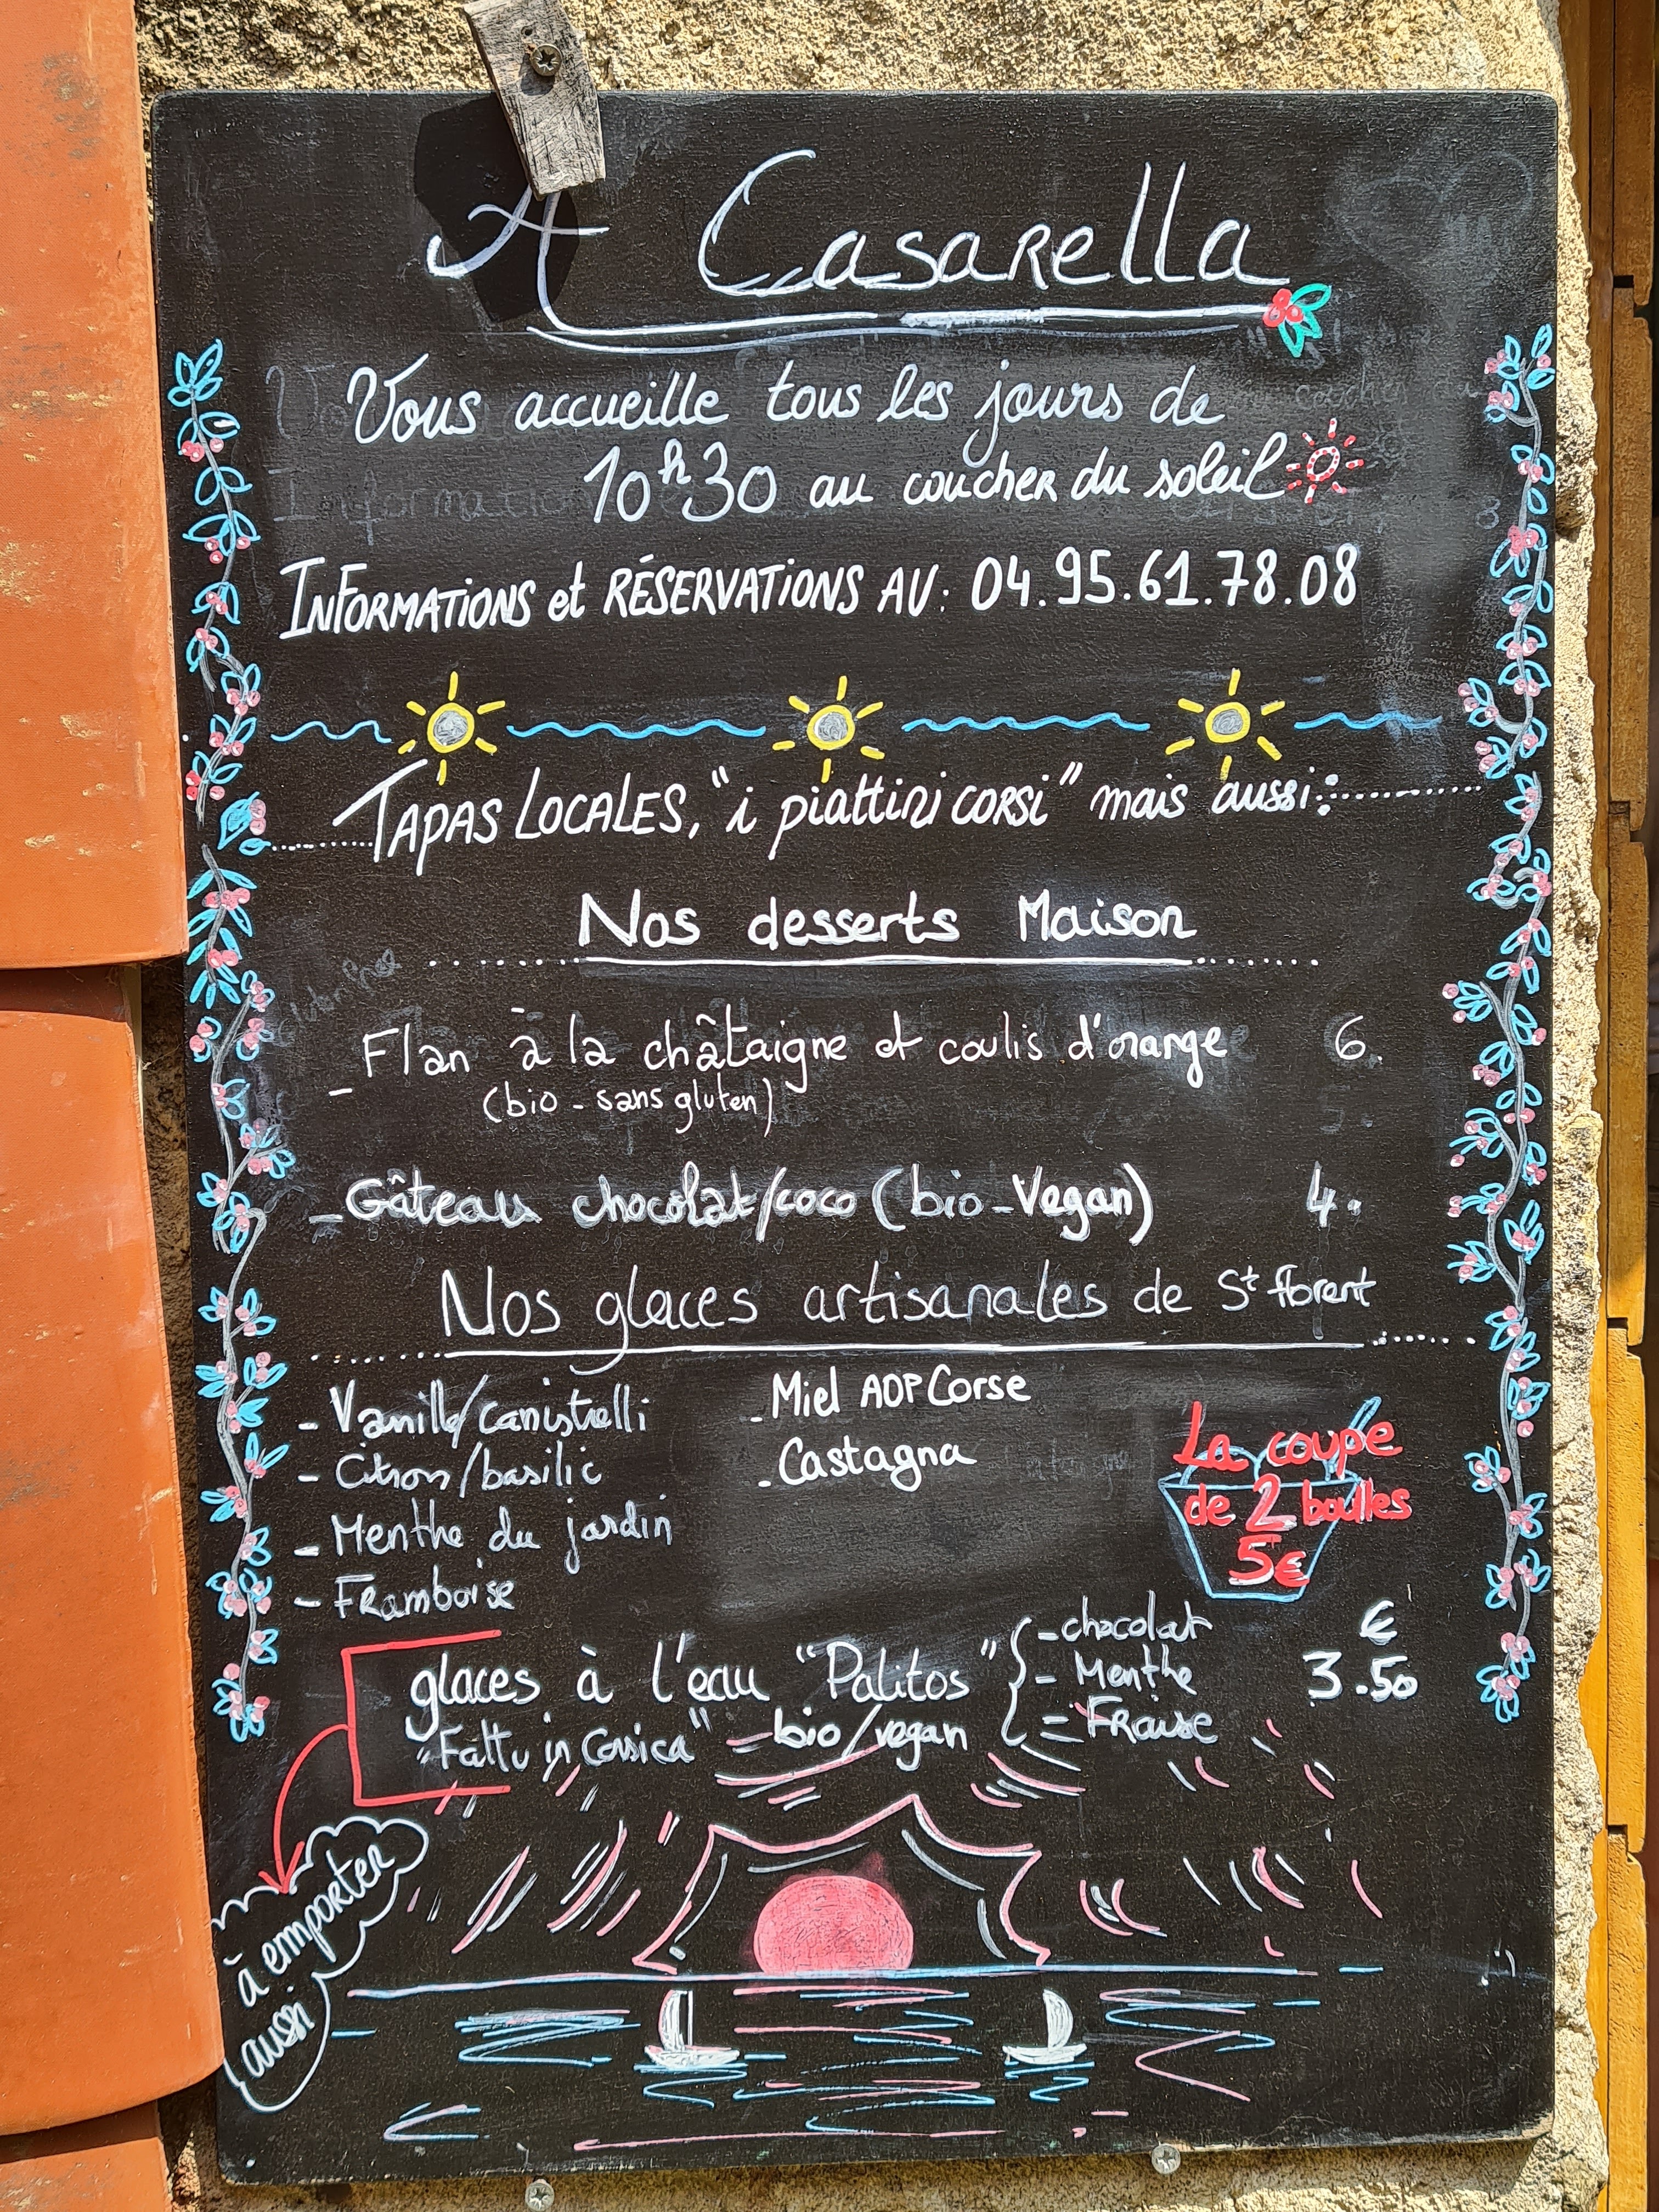 A Casarella
Vous accueille tous les jours de
10h30 au coucher du soleil
INFORMATIONS et RÉSERVATIONS AU: 04.95.61.78.08
TAPAS LOCALES, "i piattini corsi" mais aussi:
Nos desserts Maison
- Flan à la châtaigne et coulis d'orange 6.
(bio - sans gluten)
- Gâteau chocolat/coco (bio-Vegan) 4.
Nos glaces artisanales de St florent
- Vanille/canistrelli
- Citron/basilic
- Menthe du jardin
- Framboise
- Miel AOP Corse
- Castagna
La coupe
de 2 boulles
5€
glaces à l'eau "Palitos"
"Fattu in Corsica" - bio/vegan
- chocolat
- Menthe
- Fraise
€
3.50
à emporter
aussi